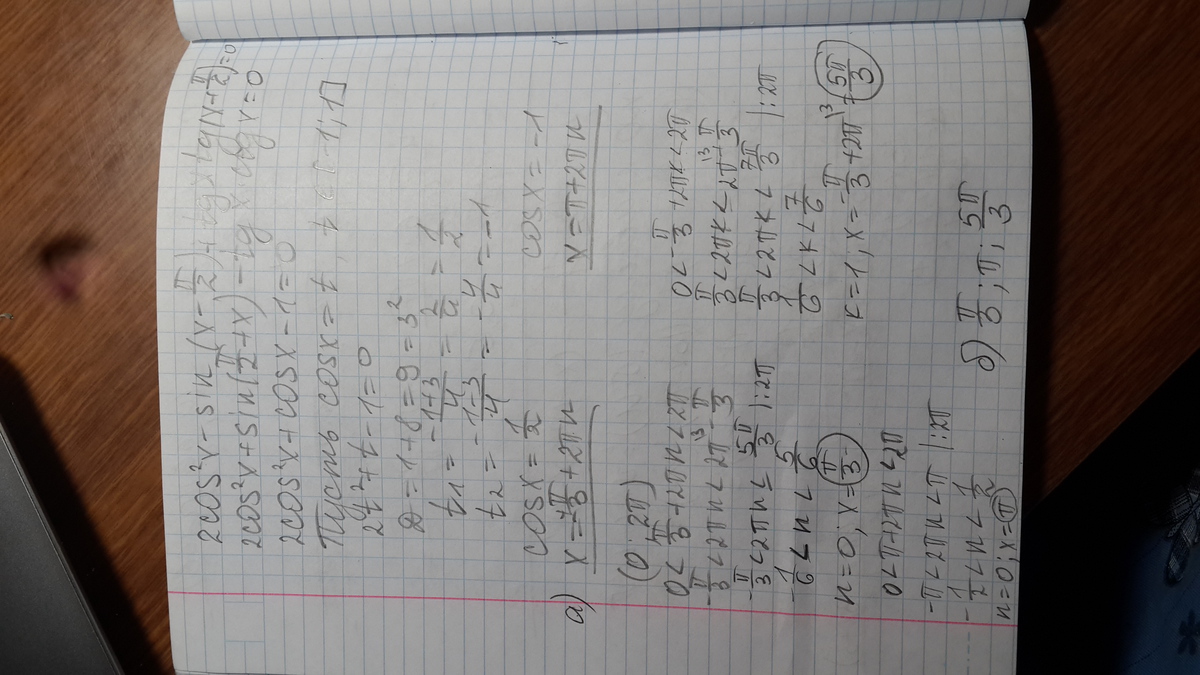 2cos²x - sin(x - π/2) + tg x tg(x + π/2) = 0
2cos²x + sin(π/2 + x) - tg x · ctg x = 0
2cos²x + cosx - 1 = 0
Пусть cosx = t, t ∈ [-1; 1]
2t² + t - 1 = 0
D = 1 + 8 = 9 = 3²
t1 = (-1+3)/4 = 2/4 = 1/2
t2 = (-1-3)/4 = -4/4 = -1
cosx = 1/2 cosx = -1
а) x = ±π/3 + 2πn x = π + 2πn
(0; 2π)
0 < π/3 + 2πn < 2π
-π/3 < 2πn < 2π\3 - π/3
-π/3 < 2πn ≤ 5π/3 |:2π
-1/6 < n < 5/6
n = 0; x = π/3
0 < -π/3 + 2πk < 2π
π/3 < 2πk < 2π\3 + π/3
π/3 < 2πk < 7π/3 |:2π
1/6 < k < 7/6
k = 1, x = -π/3 + 2π\3 = 5π/3
0 < π + 2πn < 2π
-π < 2πn < π |:2π
-1/2 < n < 1/2
n = 0; x = π
б) π/3; π; 5π/3